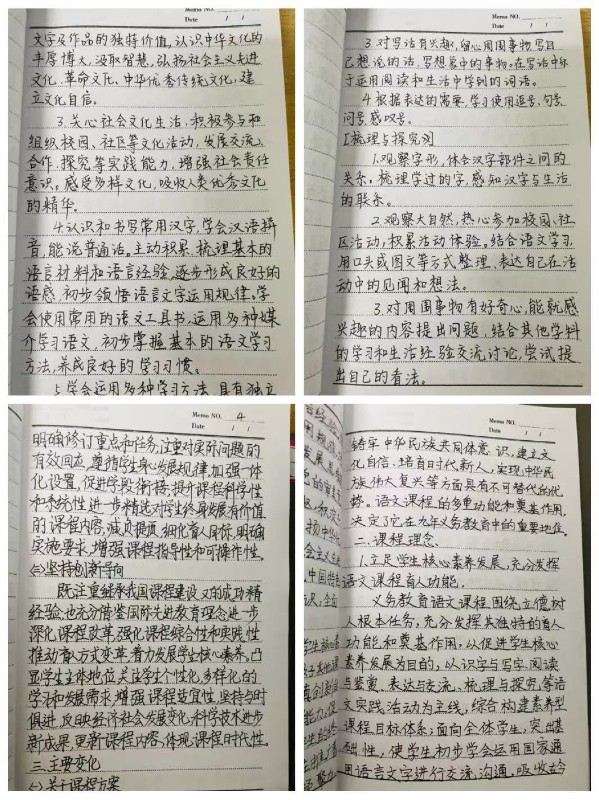 Memo NO.
Date / /
文字及作品的独特价值,认识中华文化的
丰厚博大,汲取智慧,弘扬社会主义先进
文化、革命文化、中华优秀传统文化,建
立文化自信。
3.关心社会文化生活,积极参与和
组织校园、社区等文化活动,发展交流、
合作、探究等实践能力,增强社会责任
意识。感受多样文化,吸收人类优秀文化
的精华。
4.认识和书写常用汉字,学会汉语拼
音,能说普通话。主动积累、梳理基本的
语言材料和语言经验,逐步形成良好的
语感,初步领悟语言文字运用规律。学
会使用常用的语文工具书,运用多种媒
介学习语文,初步掌握基本的语文学习
方法,养成良好的学习习惯。
5.学会运用多种学习方法,具有独立
Memo NO.
Date / /
3.对写话有兴趣,留心周围事物,写自
己想说的话,写想象中的事物。在写话中乐
于运用阅读和生活中学到的词语。
4.根据表达的需要,学习使用逗号、句号、
问号、感叹号。
【梳理与探究】
1.观察字形,体会汉字部件之间的
关系。梳理学过的字,感知汉字与生活
的联系。
2.观察大自然,热心参加校园、社
区活动,积累活动体验。结合语文学习,
用口头或图文等方式整理、表达自己在活
动中的见闻和想法。
3.对周围事物有好奇心,能就感
兴趣的内容提出问题,结合其他学科
的学习和生活经验交流讨论,尝试提
出自己的看法。
Memo NO. 4
Date / /
明确修订重点和任务,注重对实际问题的
有效回应。遵循学生身心发展规律,加强一体
化设置,促进学段衔接,提升课程科学性
和系统性。进一步精选对学生终身发展有价值
的课程内容,减负提质。细化育人目标,明确
实施要求,增强课程指导性和可操作性。
㈢坚持创新导向
既注重继承我国课程建设的成功精
经验,也充分借鉴国际先进教育理念,进一步
深化课程改革。强化课程综合性和实践性,
推动育人方式变革,着力发展学生核心素养。凸
显学生主体地位,关注学生个性化、多样化的
学习和发展需求,增强课程适宜性。坚持与时
俱进,反映经济社会发展变化、科学技术进步
新成果,更新课程内容,体现课程时代性。
三、主要变化
㈠关于课程方案
Memo NO.
Date / /
铸牢中华民族共同体意识,建立文
化自信,培育时代新人,实现中华民
族伟大复兴等方面具有不可替代的优
势。语文课程的多重功能和奠基作用,
决定了它在九年义务教育中的重要地位。
二、课程理念
1.立足学生核心素养发展,充分发挥
语文课程育人功能。
义务教育语文课程围绕立德树
人根本任务,充分发挥其独特的育人
功能和奠基作用,以促进学生核心
素养发展为目的,以识字与写字、阅读
与鉴赏、表达与交流、梳理与探究等语
文实践活动为主线,综合构建素养型
课程目标体系;面向全体学生,突出基
础性,使学生初步学会运用国家通
用语言文字进行交流沟通,吸收古今